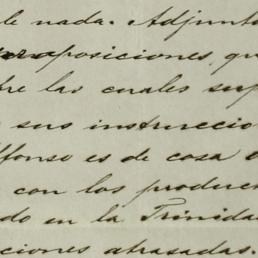 le nada. Adjunto
proposiciones qu
bre las cuales sup
sus instruccio
lfonso es de cosa
con los produc
do en la Trinida
ciones atrasadas.